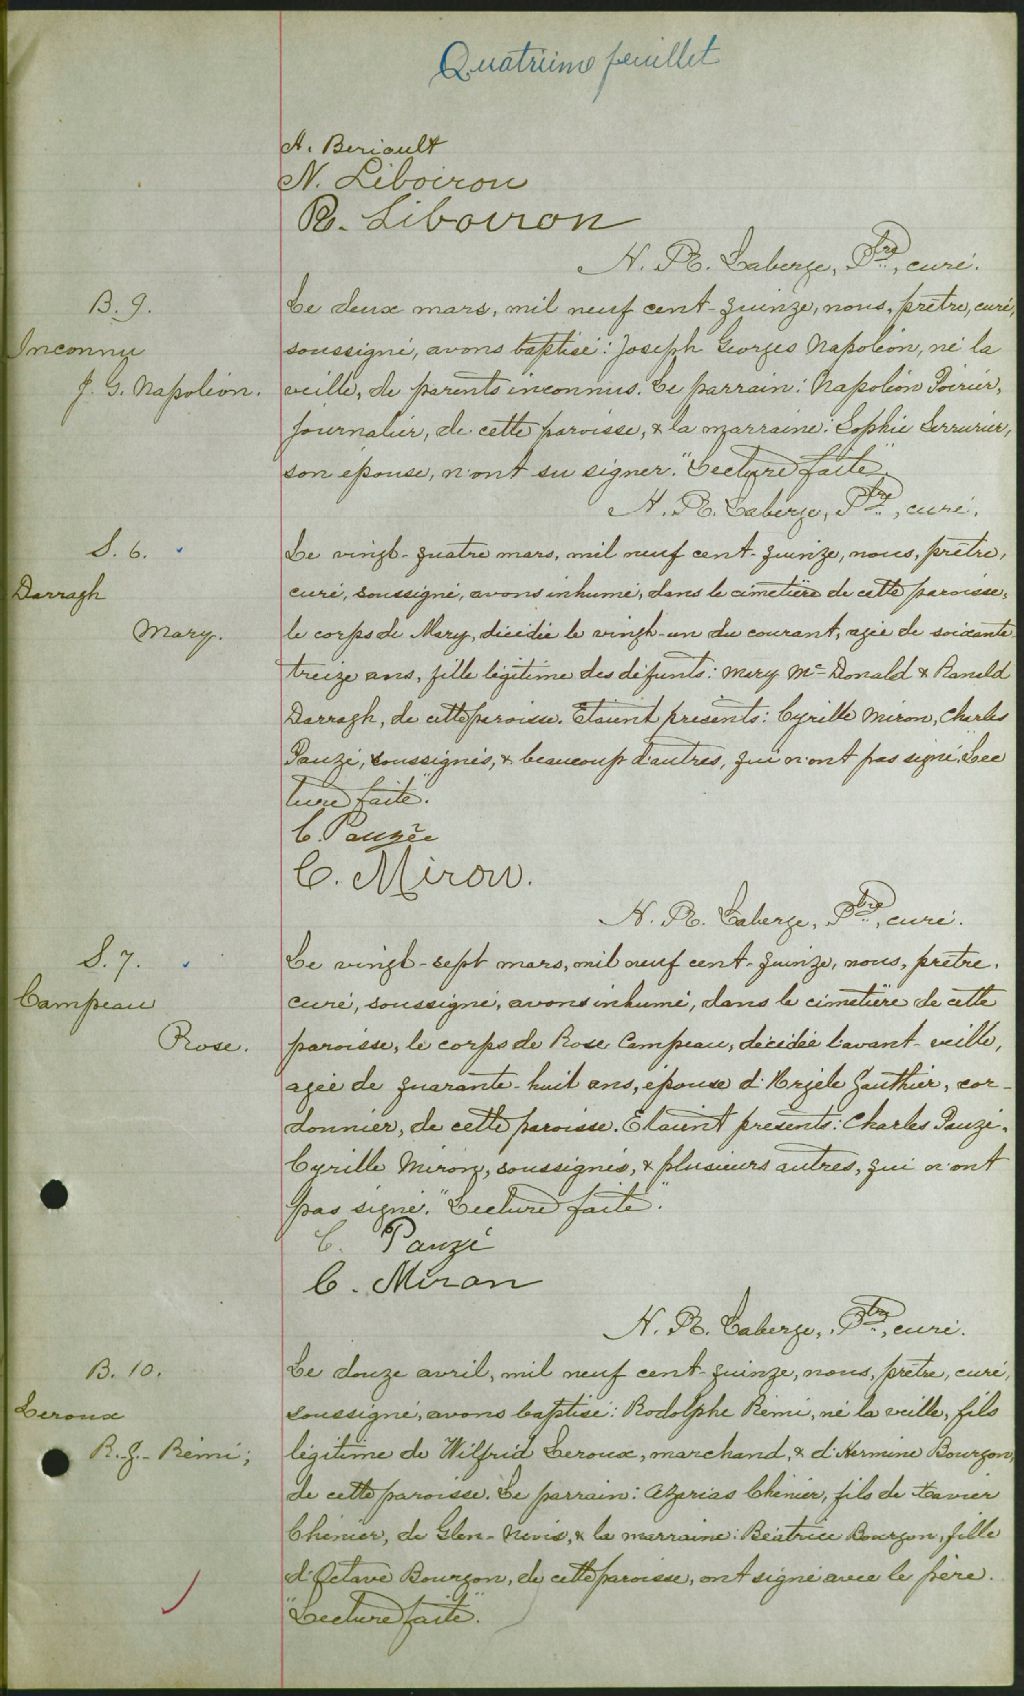 Quatrième feuillet
A. Beriault
N. Leboiron
R. Liboiron
H. R. Laberge, Ptre, curé.
B. 9.
Inconnu
J. G. Napoléon.
Le deux mars, mil neuf cent-quinze, nous, prêtre, curé,
soussigné, avons baptisé: Joseph Georges Napoléon, né la
veille, de parents inconnus. Le parrain: Napoléon Poirier,
journalier, de cette paroisse, & la marraine: Sophie Serrurier,
son épouse, n'ont su signer. "Lecture faite".
H. R. Laberge, Ptre, curé.
S. 6.
Darragh
Mary.
Le vingt-quatre mars, mil neuf cent-quinze, nous, prêtre,
curé, soussigné, avons inhumé, dans le cimetière de cette paroisse,
le corps de Mary, décédée le vingt-un du courant, agée de soixante
treize ans, fille légitime des défunts: Mary Mc Donald & Ranald
Darragh, de cette paroisse. Etaient présents: Cyrille Miron, Charles
Pauzé, soussignés, & beaucoup d'autres, qui n'ont pas signé. "Lec
ture faite".
C. Pauzée
C. Miron.
H. R. Laberge, Ptre, curé.
S. 7.
Campeau
Rose.
Le vingt-sept mars, mil neuf cent-quinze, nous, prêtre,
curé, soussigné, avons inhumé, dans le cimetière de cette
paroisse, le corps de Rose Campeau, décédée l'avant-veille,
agée de quarante-huit ans, épouse d'Argèle Gauthier, cor-
donnier, de cette paroisse. Etaient présents: Charles Pauzé,
Cyrille Miron, soussignés, & plusieurs autres, qui n'ont
pas signé. "Lecture faite".
C. Pauzé
C. Miron
H. R. Laberge, Ptre, curé.
B. 10.
Leroux
R.-J.- Rémi;
Le douze avril, mil neuf cent-quinze, nous, prêtre, curé,
soussigné, avons baptisé: Rodolphe Rémi, né la veille, fils
légitime de Wilfrid Leroux, marchand, & d'Hermine Bourgon,
de cette paroisse. Le parrain: Azarias Chénier, fils de Xavier
Chénier, de Glen-Nevis, & la marraine: Béatrice Bourgon, fille
d'Octave Bourgon, de cette paroisse, ont signé avec le père.
"Lecture faite".